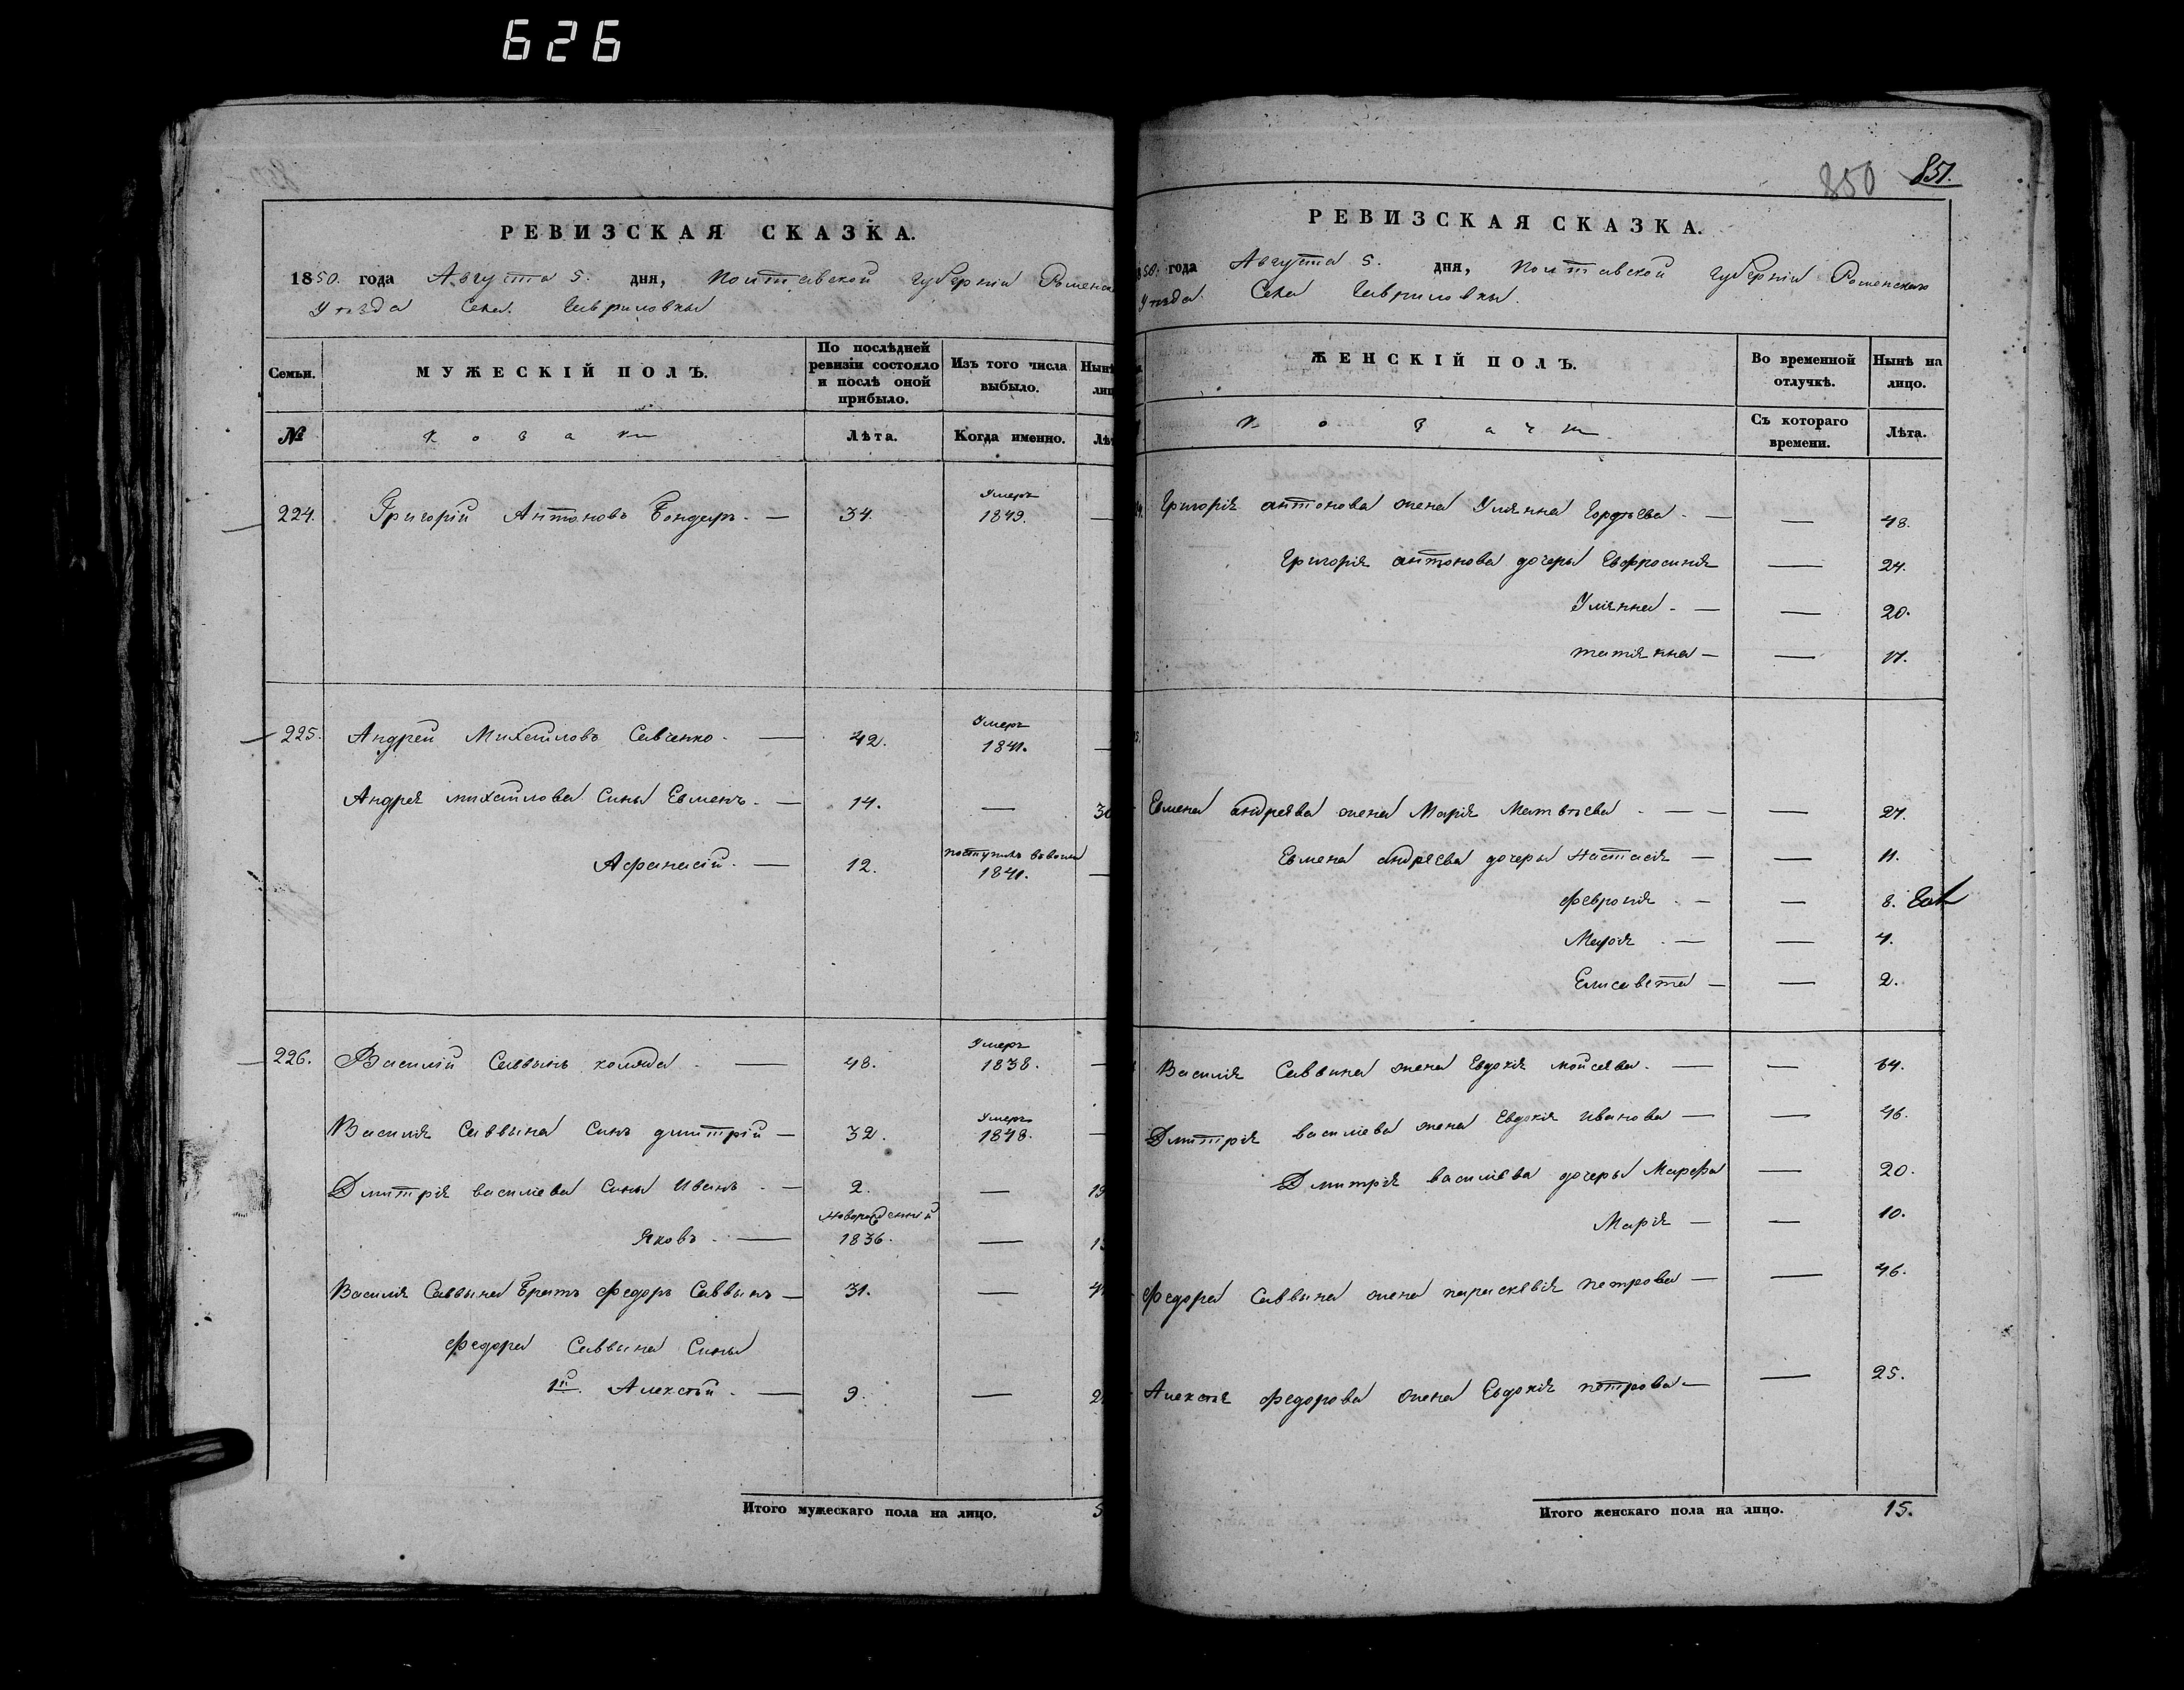 626
РЕВИЗСКАЯ СКАЗКА.
1850. года Августа 5. дня, Полтавской Губерніи Роменск
Уѣзда Села Гавриловки
Семьи.
МУЖЕСКІЙ ПОЛЪ.
По послѣдней ревизіи состояло и послѣ оной прибыло.
Изъ того числа выбыло.
Нынѣ
№
Козаки
Лѣта.
Когда именно.
224. Григорій Антоновъ Бондарь. — 34. Умеръ 1849. —
225. Андрей Михайловъ Савченко. — 42. Умеръ 1841. —
Андрея михайлова Сины Евменъ. — 14. — 30
Афанасій. — 12. поступилъ 1841. —
226. Василій Саввинъ коляда. — 48. Умеръ 1838. —
Василія Саввина Синъ дмитрій — 32. Умеръ 1848. —
Дмитрія василіева Сины Иванъ. — 2. — 19
Яковъ. — Новорожденній 1836. —
Василія Саввина Братъ федоръ Саввинъ — 31. —
федора Саввина Сины
1й. Алексѣй. — 9. —
Итого мужескаго пола на лицо. 5
850 851.
РЕВИЗСКАЯ СКАЗКА.
50. года Августа 5. дня, Полтавской Губерніи Роменскаго
Уѣзда. Села Гавриловки.
ЖЕНСКІЙ ПОЛЪ.
Во временной отлучкѣ.
Нынѣ на лицо.
Козачки
Съ котораго времени.
Лѣта.
Григорія антонова жена Уліянна Гордѣева. — — 48.
Григорія антонова дочеры Евфросинія — 24.
Уліянна. — — 20.
татіянна — — 17.
Евмена андреева жена Марія Матвѣева. — — — 27.
Евмена андреева дочеры Настасія — — 11.
февронія. — — 8.
Марія. — — 4.
Елисавета — — 2.
Василія Саввина жена Евдокія мойсеева. — — 64.
Дмитрія василіева жена Евдокія Иванова — — 46.
Дмитрія василіева дочеры Марфа — 20.
Марія — — 10.
федора Саввина жена параскевія петрова — — 46.
Алексѣя федорова жена Евдокія петрова — — 25.
Итого женскаго пола на лицо. 15.